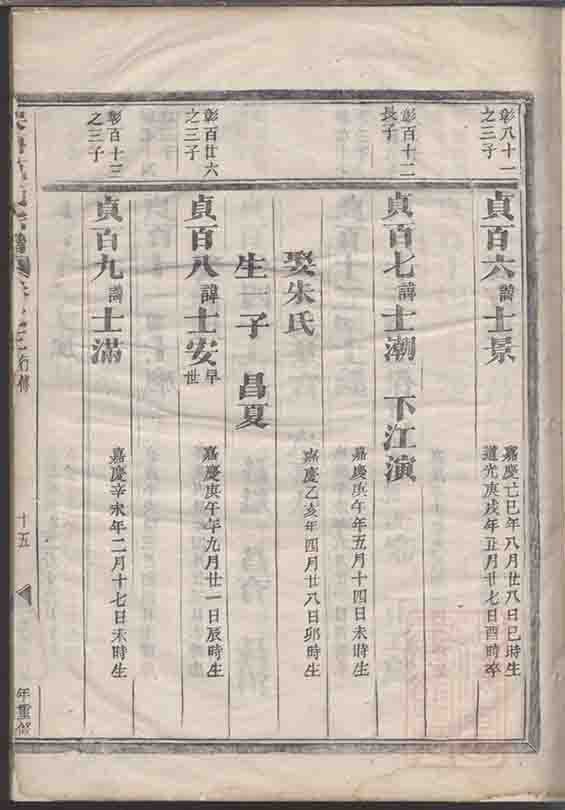 彰八十一
之三子
貞百六諱士景
嘉慶己巳年八月廿八日巳時生
道光庚戌年五月廿七日酉時卒
彰百十二
長子
貞百七諱士潮 下江演
嘉慶庚午年五月十四日未時生
娶朱氏
嘉慶乙亥年四月廿八日卯時生
生一子 昌夏
彰百廿六
之三子
貞百八諱士安早世
嘉慶庚午年九月廿一日辰時生
彰百十三
之三子
貞百九諱士滿
嘉慶辛未年二月十七日未時生
行傳
十五
年重修